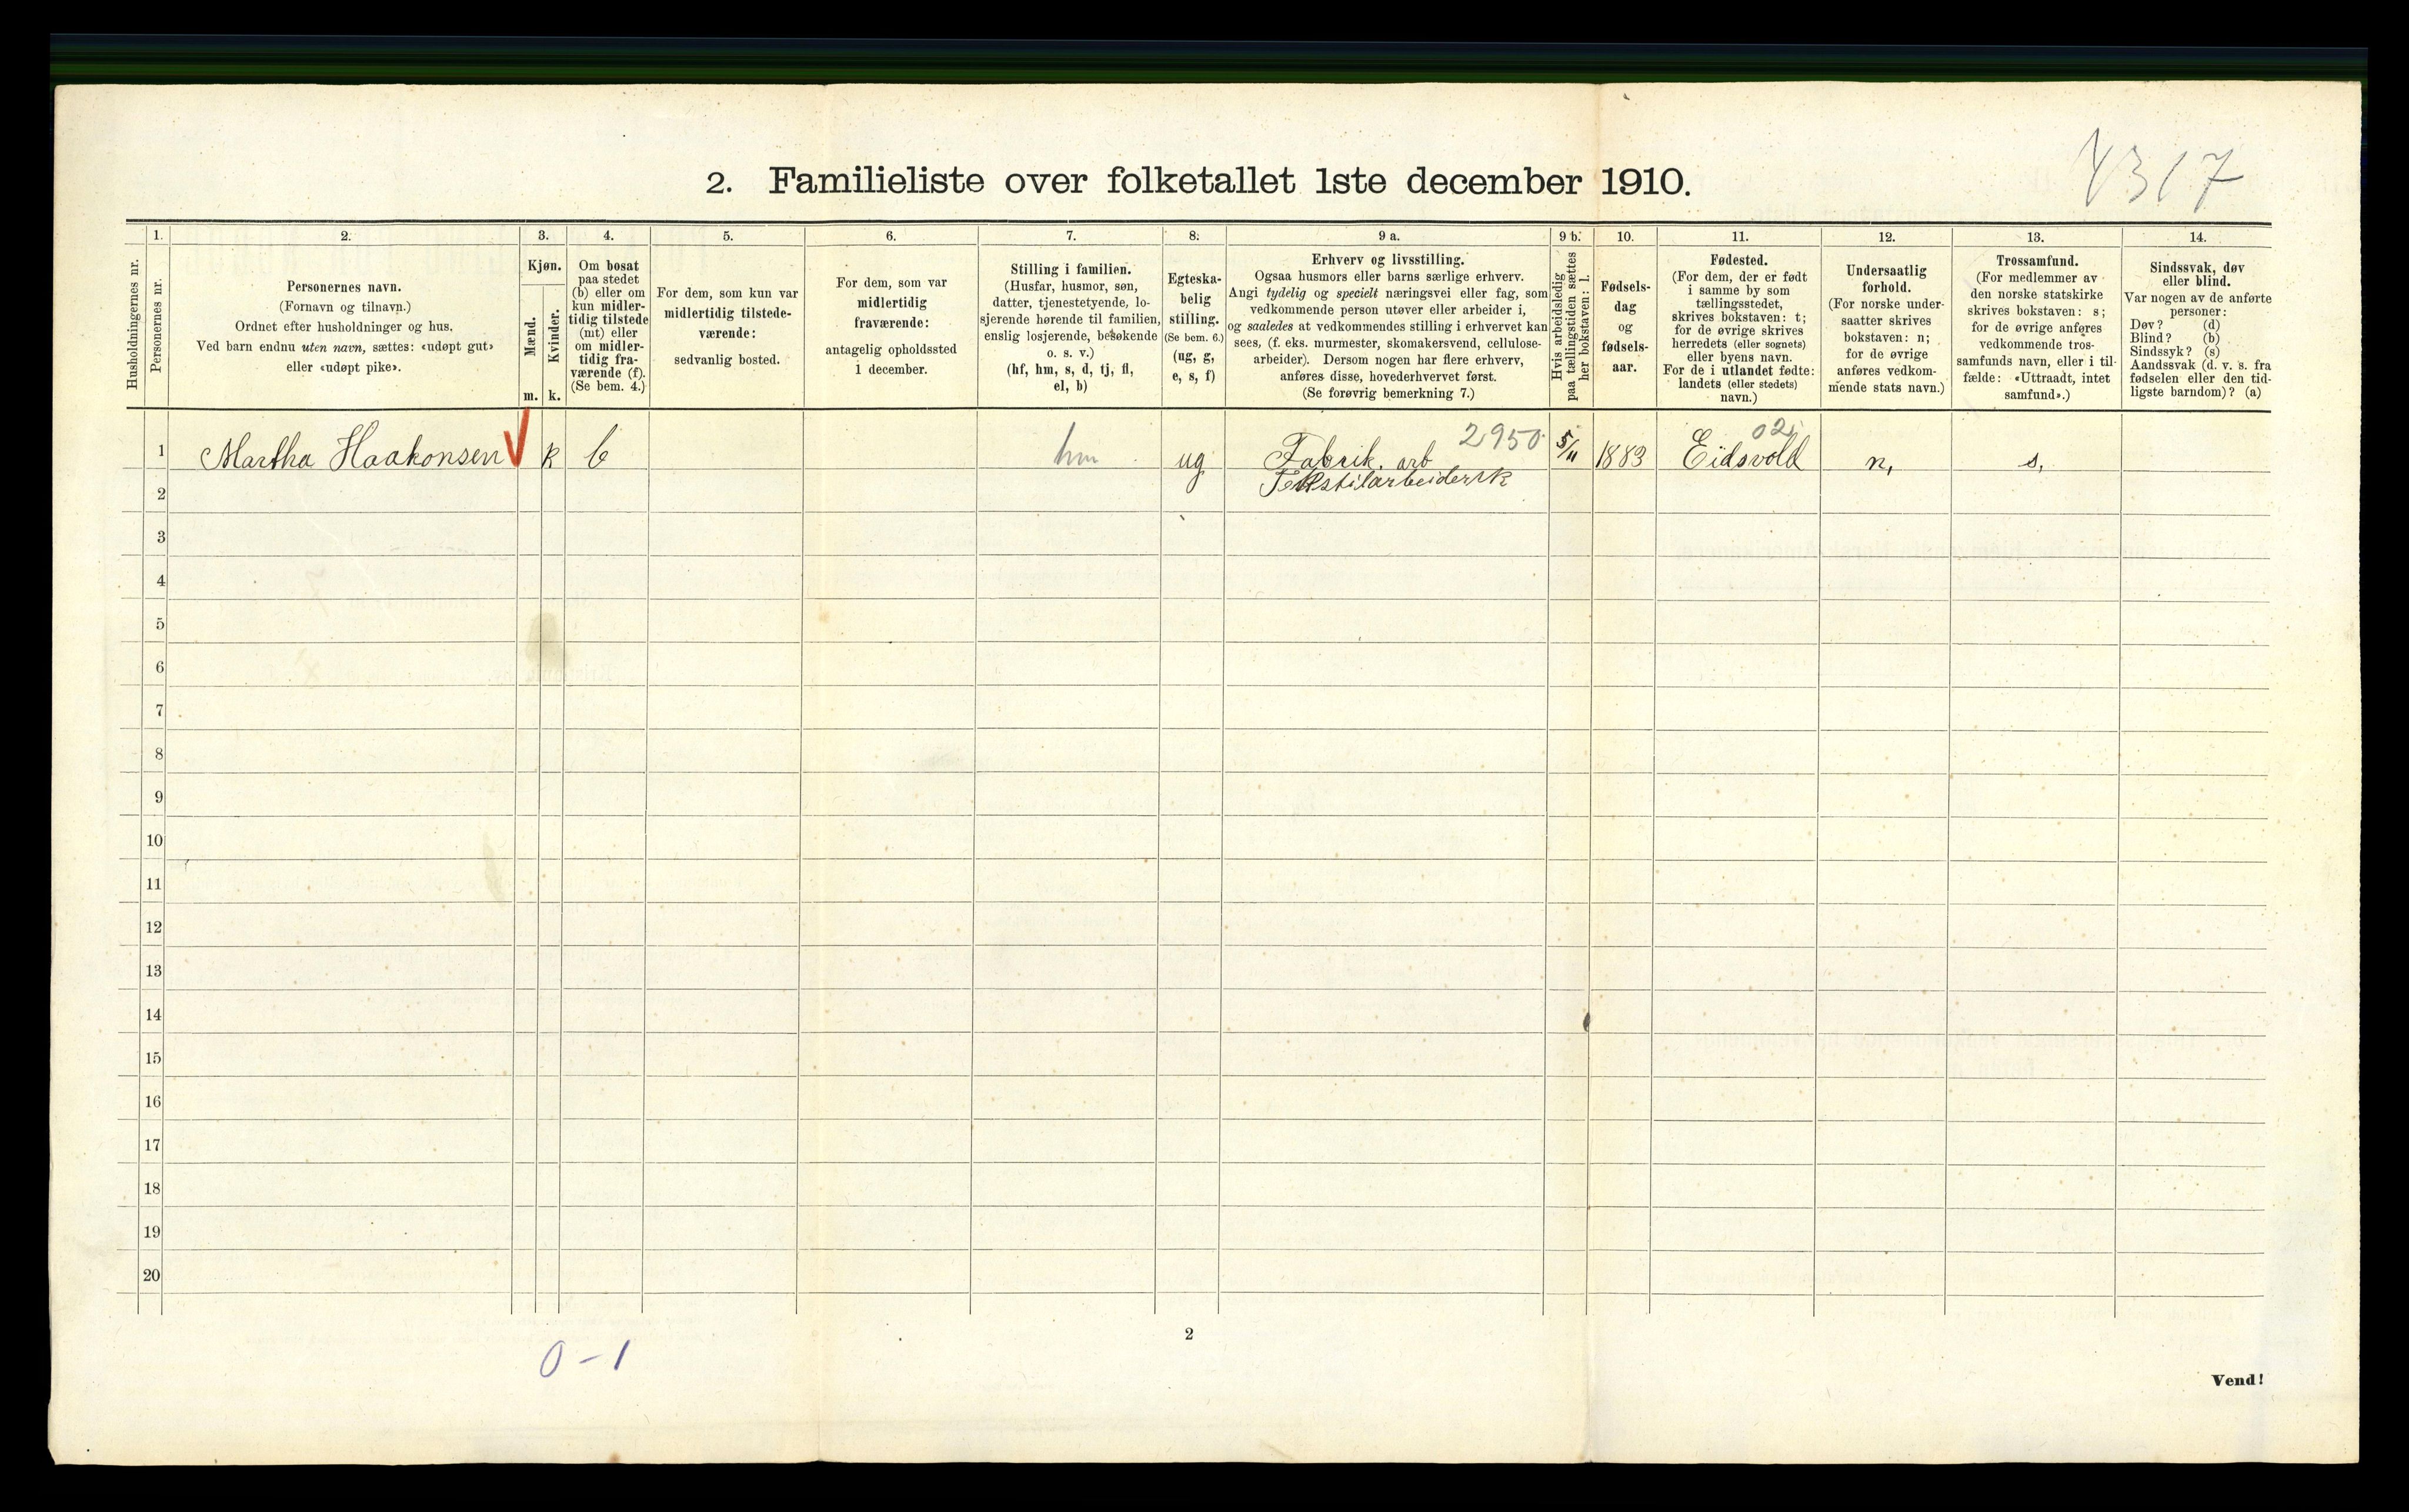 4317
2. Familieliste over folketallet 1ste december 1910.
Husholdningernes nr.
1.
Personernes nr.
2.
Personernes navn.
(Fornavn og tilnavn.)
Ordnet efter husholdninger og hus.
Ved barn endnu uten navn, sættes: «udøpt gut»
eller «udøpt pike».
3.
Kjøn.
Mænd.
Kvinder.
m. k.
4.
Om bosat
paa stedet
(b) eller om
kun midler-
tidig tilstede
(mt) eller
om midler-
tidig fra-
værende (f).
(Se bem. 4.)
5.
For dem, som kun var
midlertidig tilstede-
værende:
sedvanlig bosted.
6.
For dem, som var
midlertidig
fraværende:
antagelig opholdssted
1 december.
7.
Stilling i familien.
(Husfar, husmor, søn,
datter, tjenestetyende, lo-
sjerende hørende til familien,
enslig losjerende, besøkende
o. s. v.)
(hf, hm, s, d, tj, fl,
el, b)
8.
Egteska-
belig
stilling.
(Se bem. 6.)
(ug, g,
e, s, f)
9 a.
Erhverv og livsstilling.
Ogsaa husmors eller barns særlige erhverv.
Angi tydelig og specielt næringsvei eller fag, som
vedkommende person utøver eller arbeider i,
og saaledes at vedkommendes stilling i erhvervet kan
sees, (f. eks. murmester, skomakersvend, cellulose-
arbeider). Dersom nogen har flere erhverv,
anføres disse, hovederhvervet først.
(Se forøvrig bemerkning 7.)
9 b.
Hvis arbeidsledig
paa tællingstiden sættes
her bokstaven: l.
10.
Fødsels-
dag
og
fødsels-
aar.
11.
Fødested.
(For dem, der er født
i samme by som
tællingsstedet,
skrives bokstaven: t;
for de øvrige skrives
herredets (eller sognets)
eller byens navn.
For de i utlandet fødte:
landets (eller stedets)
navn.)
12.
Undersaatlig
forhold.
(For norske under-
saatter skrives
bokstaven: n;
for de øvrige
anføres vedkom-
mende stats navn.)
13.
Trossamfund.
(For medlemmer av
den norske statskirke
skrives bokstaven: s;
for de øvrige anføres
vedkommende tros-
samfunds navn, eller i til-
fælde: «Uttraadt, intet
samfund».)
14.
Sindssvak, døv
eller blind.
Var nogen av de anførte
personer:
Døv? (d)
Blind? (b)
Sindssyk? (s)
Aandssvak (d. v. s. fra
fødselen eller den tid-
ligste barndom)? (a)
1 Martha Haakonsen k b hm ug Fabrik. arb 2950 5/11 1883 Eidsvold 02 n, s,
2 Tekstilarbeidersk
3
4
5
6
7
8
9
10
11
12
13
14
15
16
17
18
19
20
0-1
2
Vend!